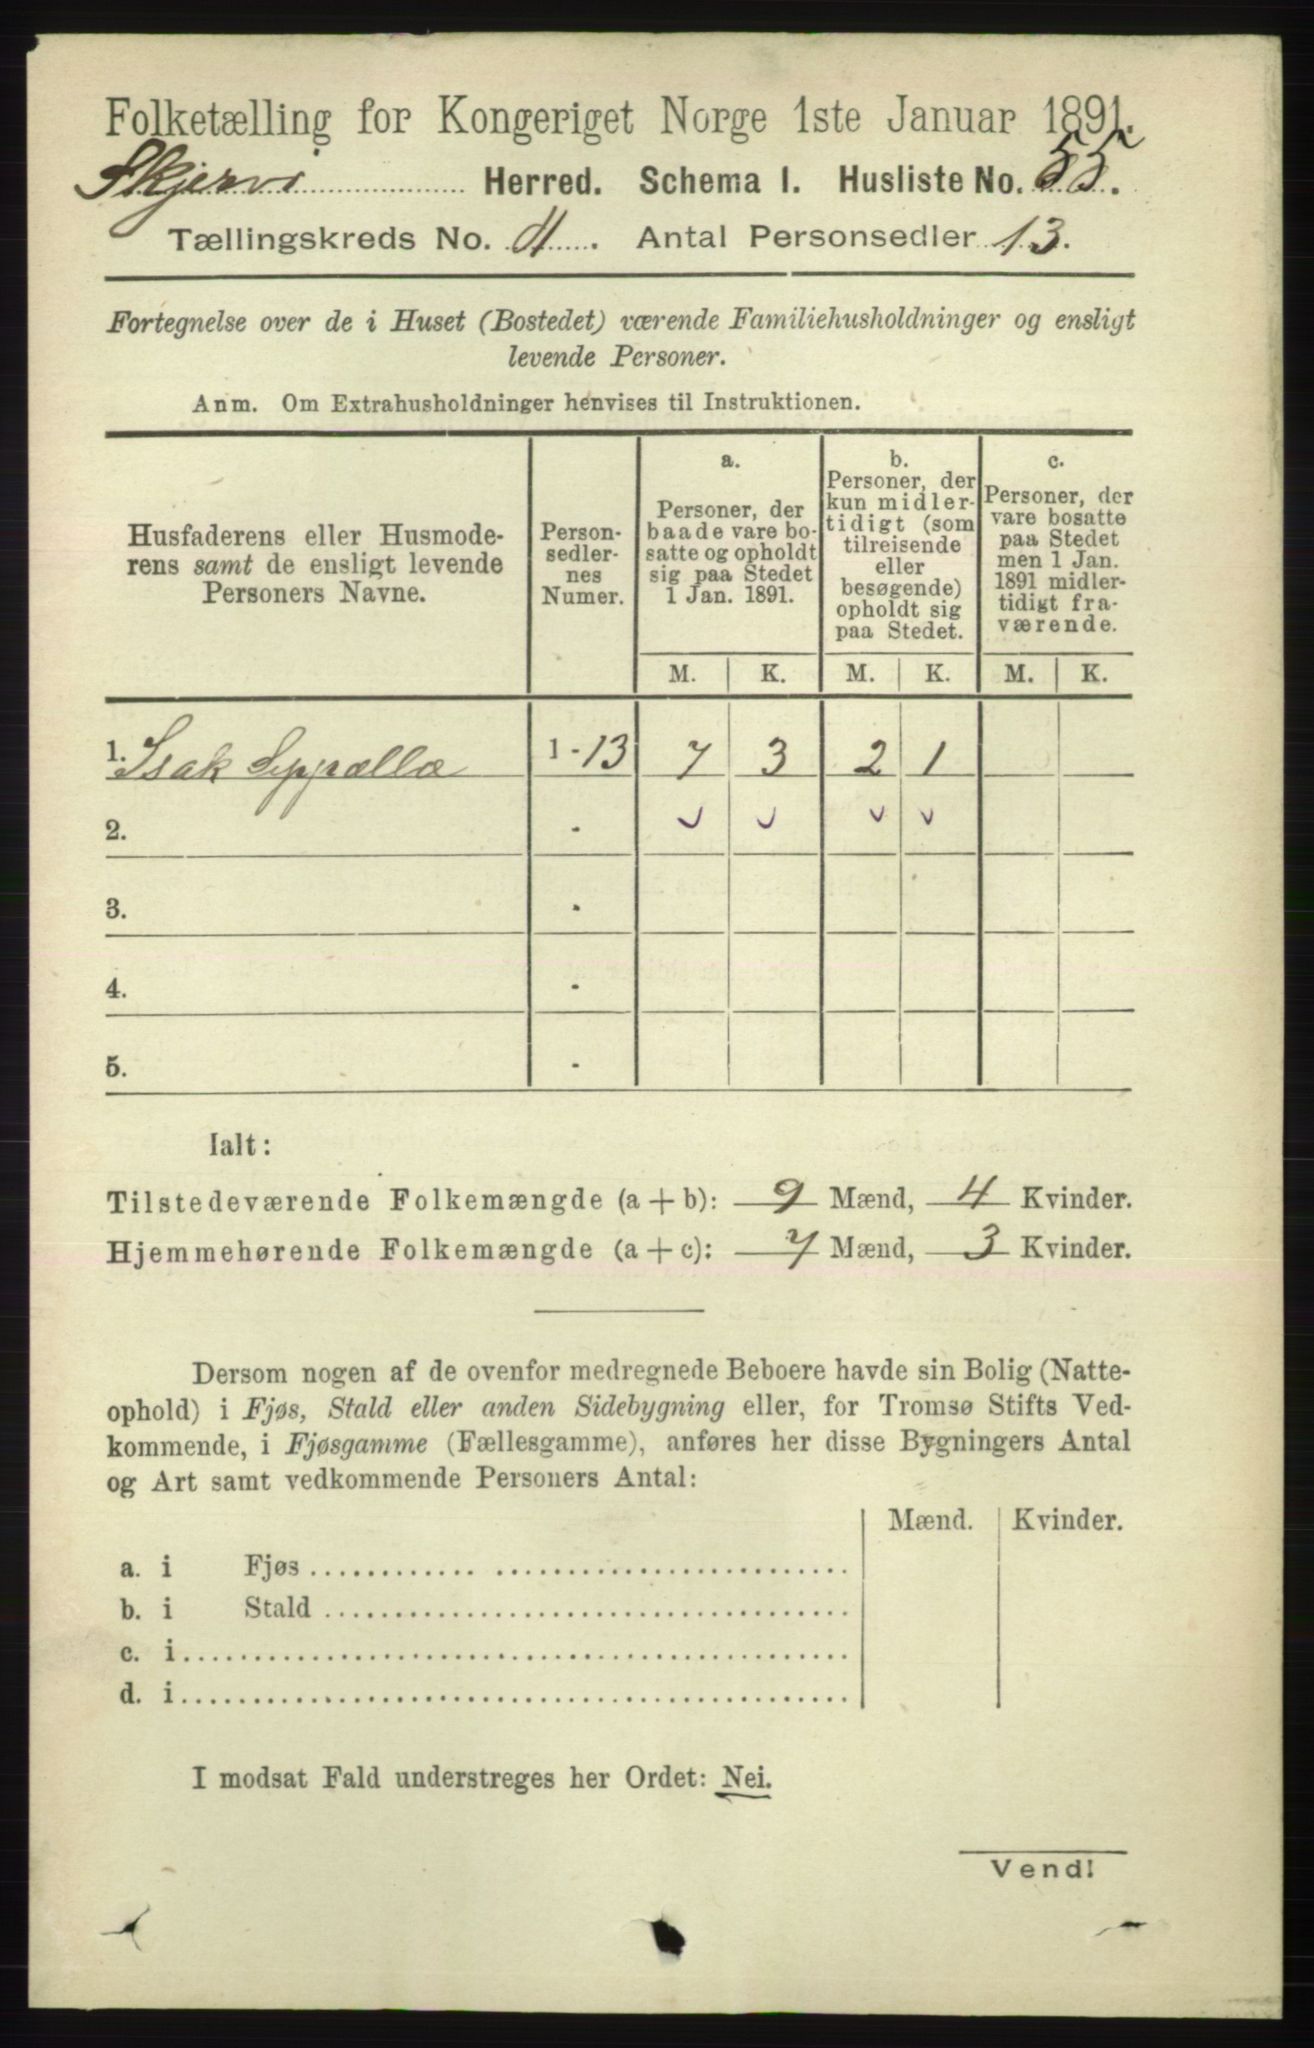 Folketælling for Kongeriget Norge 1ste Januar 1891.
Skjervi Herred. Schema I. Husliste No. 55.
Tællingskreds No. 4. Antal Personsedler 13.
Fortegnelse over de i Huset (Bostedet) værende Familiehusholdninger og ensligt
levende Personer.
Anm. Om Extrahusholdninger henvises til Instruktionen.
Husfaderens eller Husmode-
rens samt de ensligt levende
Personers Navne.
Person-
sedler-
nes
Numer.
a.
Personer, der
baade vare bo-
satte og opholdt
sig paa Stedet
1 Jan. 1891.
b.
Personer, der
kun midler-
tidigt (som
tilreisende
eller
besøgende)
opholdt sig
paa Stedet.
c.
Personer, der
vare bosatte
paa Stedet
men 1 Jan.
1891 midler-
tidigt fra-
værende.
M. K. M. K. M. K.
1. Isak Seppælla 1-13 7 3 2 1
2.
3.
4.
5.
Ialt:
Tilstedeværende Folkemængde (a + b): 9 Mænd, 4 Kvinder.
Hjemmehørende Folkemængde (a + c): 7 Mænd, 3 Kvinder.
Dersom nogen af de ovenfor medregnede Beboere havde sin Bolig (Natte-
ophold) i Fjøs, Stald eller anden Sidebygning eller, for Tromsø Stifts Ved-
kommende, i Fjøsgamme (Fællesgamme), anføres her disse Bygningers Antal
og Art samt vedkommende Personers Antal:
Mænd. Kvinder.
a. i Fjøs
b. i Stald
c. i
d. i
I modsat Fald understreges her Ordet: Nei.
Vend!